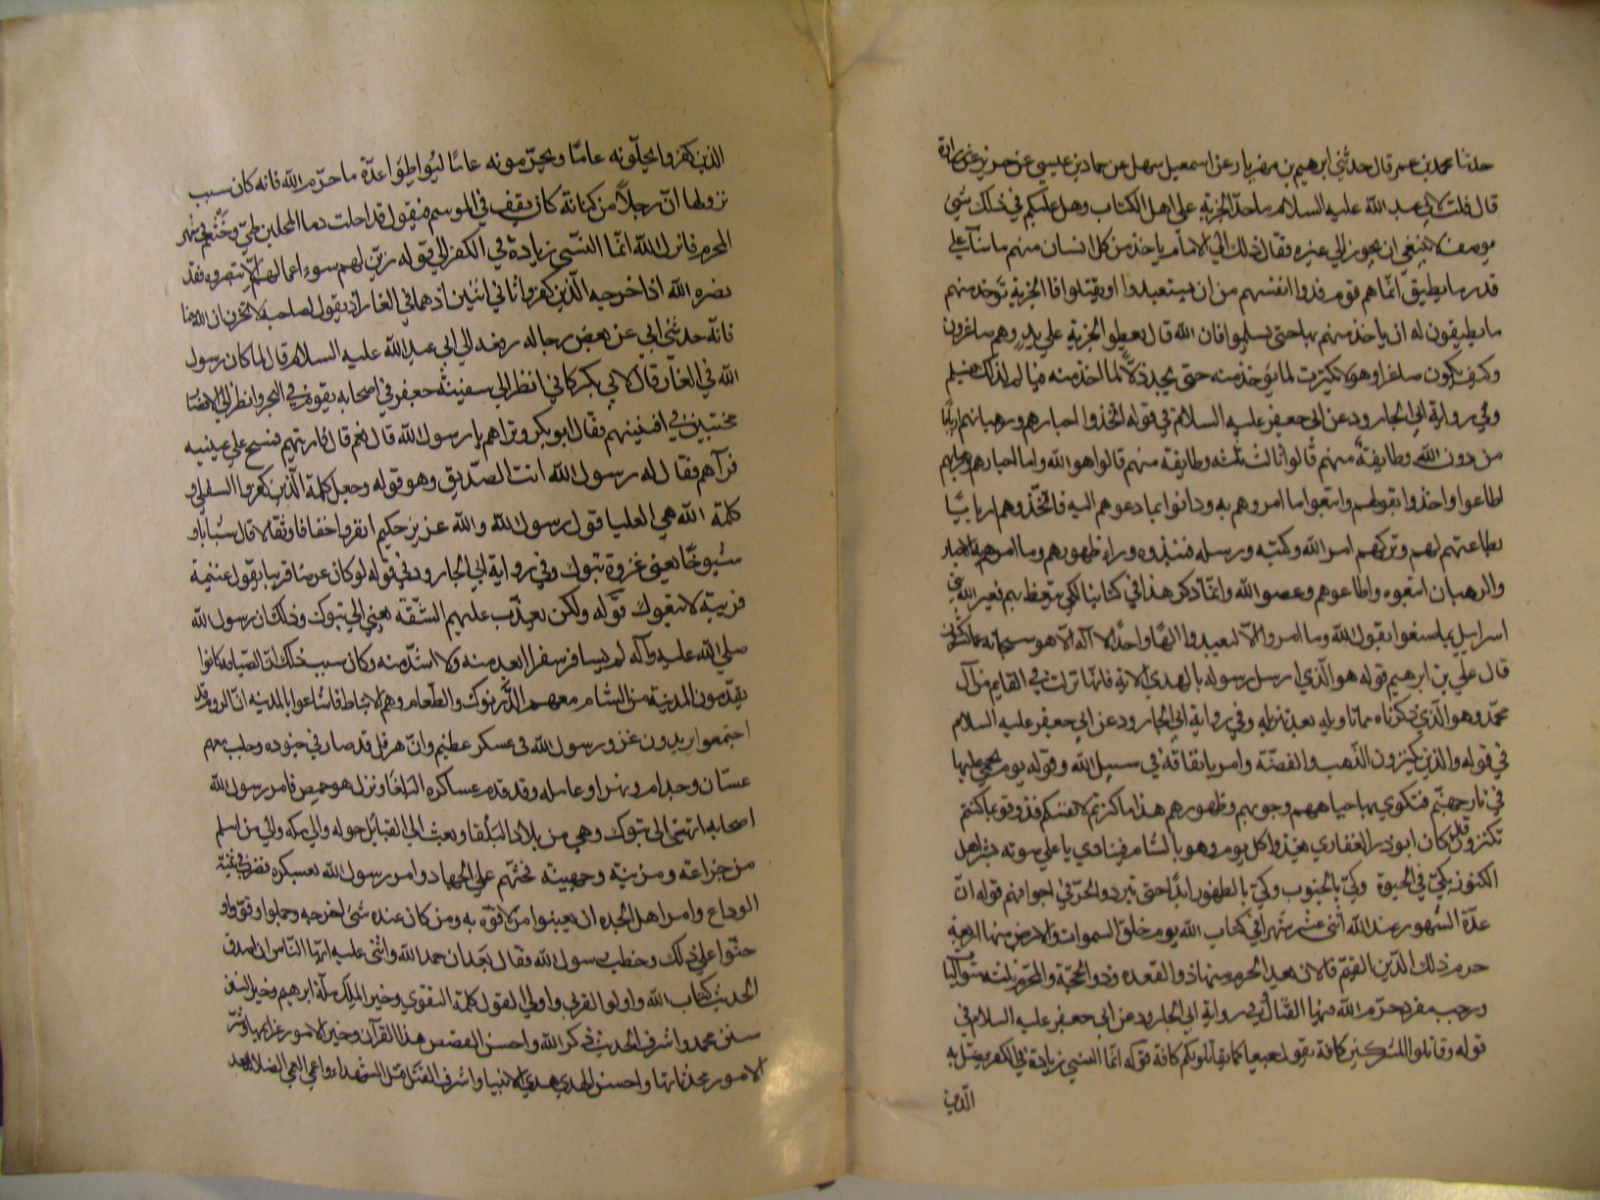 حدثنا محمد بن عمر قال حدثنى ابرهيم بن مهزيار عن اسمعيل سهل عن حماد بن عيسى عن حريز عن زرارة
قال قلت لابى عبد الله عليه السلام ما حد الجزية على اهل الكتاب وهل عليهم في ذلك شئ
موصف لا ينبغي ان يجوز الي غيره فقال ذلك الي الامام ياخذ من كل انسان منهم ما شآء على
قدر ما يطيق انما هم قوم فدوا انفسهم من ان يستعبدوا او يقتلوا فالجزية توخذ منهم
ما يطيقون له ان ياخذ منهم بها حتى يسلموا فان الله قال يعطوا الجزية علي يد وهم صاغرون
وكيف يكون صاغرا وهو لا يكترث لما يوخذ منه حتى يجد ذلا لما اخذ منه فيالم لذلك فيسلم
وفي رواية ابي الجارود عن ابي جعفر عليه السلام في قوله اتخذوا احبارهم ورهبانهم اربابا
من دون الله وطايفة منهم قالوا ثالث ثلثه وطايفة منهم قالوا هو الله واما احبارهم ورهبانهم
اطاعوا واخذوا بقولهم واتبعوا ما امروهم به ودانوا بما دعوهم اليه فاتخذوهم اربابا
بطاعتهم لهم وتركهم امر الله وكتبه ورسله فنبذوه وراء ظهورهم وما امرهم به الاحبار
والرهبان اتبعوه واطاعوهم وعصوا الله وانما ذكر هذا في كتابنا لكي نتعظ بهم فعير الله بنى
اسرايل بما صنعوا يقول الله وما امروا الا ليعبدوا الها واحدا لا اله الا هو سبحانه عما يشركون
قال علي بن ابرهيم قوله هو الذي ارسل رسوله بالهدي الاية فانها نزلت في القايم من آل
محمد وهو الذي ذكرناه مما تاويله بعد تنزيله وفي رواية ابي الجارود عن ابي جعفر عليه السلام
في قوله والذين يكنزون الذهب والفضة وامر بانفاقه في سبيل الله وقوله يوم يحمي عليها
في نار جهنم فتكوي بها جباههم وجنوبهم وظهورهم هذا ما كنزتم لانفسكم فذوقوا ما كنتم
تكنزون قال كان ابو ذر الغفاري يغدوا كل يوم وهو بالشام فينادي باعلي صوته بشر اهل
الكنوز بكي في الجباه وكي بالجنوب وكي بالظهور ابدا حتى يتردد الحر في اجوافهم قوله ان
عدة الشهور عند الله اثنى عشر شهرا في كتاب الله يوم خلق السموات والارض منها اربعة
حرم ذلك الدين القيم فالان يعد الحرم منها ذو القعده وذو الحجة والمحرم ثلثه متواليات
ورجب مفرد حرم الله فيها القتال في رواية ابي الجارود عن ابي جعفر عليه السلام في
قوله وقاتلوا المشركين كافة يقول جميعا كما يقاتلونكم كافة قوله انما النسي زيادة في الكفر يضل به
الذين
الذين كفروا يحلونه عاما ويحرمونه عاما ليواطوا عدة ما حرم الله فانه كان سبب
نزولها ان رجلا من كنانة كان يقف في الموسم فيقول قد احلت دما المحلين طي وخثعم في شهر
المحرم فانزل الله انما النسي زيادة في الكفر الي قوله زين لهم سوء اعمالهم الا تنصروه فقد
نصره الله اذ اخرجه الذين كفروا ثاني اثنين اذ هما في الغار اذ يقول لصاحبه لا تحزن ان الله معنا
فانه حدثنى ابي عن بعض رجاله رفعه الي ابي عبد الله عليه السلام قال لما كان رسول
الله في الغار قال لابي بكر كاني انظر الي سفينة جعفر في اصحابه يقوم في البحر وانظر الي الانصار
محتبين في افنيتهم فقال ابو بكر وتراهم يا رسول الله قال نعم قال فارنيهم فمسح علي عينيه
فرآهم فقال له رسول الله انت الصديق وهو قوله وجعل كلمة الذين كفروا السفلي و
كلمة الله هي العليا قول رسول الله والله عزيز حكيم انفروا خفافا وثقالا قال شبابا و
شيوخا يعني غزوة تبوك وفي رواية ابي الجارود في قوله لو كان عرضا قريبا يقول غنيمة
قريبة لاتبعوك قوله ولكن بعدت عليهم الشقة يعني الي تبوك وذلك ان رسول الله
صلي الله عليه وآله لم يسافر سفرا ابعد منه ولا اشد منه وكان سبب ذلك ان الصيافه كانوا
يقدمون المدينة من الشام معهم الدرنوك والطعام وهم الانباط فاشاعوا بالمدينه ان الروم قد
اجتمعوا يريدون غزو رسول الله في عسكر عظيم وان هرقل قد صار في جنوده وجلب معهم
غسان وجذام وبهراو عامله وقد قدم عساكره البلقا ونزل هو حمص فامر رسول الله
اصحابه التهيى الى تبوك وهي من بلاد البلقا وبعث الي القبائل حوله والي مكه والي من اسلم
من خزاعة ومزينة وجهينة فحثهم علي الجهاد وامر رسول الله بعسكره فضرب في ثنية
الوداع وامر اهل الجده ان يعينوا من لا قوة به ومن كان عنده شئ اخرجه وحملوا وقووا و
حثوا علي ذلك وخطب رسول الله فقال بعد ان حمد الله واثنى عليه ايها الناس ان اصدق
الحديث كتاب الله واولو القربى واولي القول كلمة التقوي وخير الملل ملة ابرهيم وخير السنن
سنن محمد واشرف الحديث ذكر الله واحسن القصص هذا القرآن وخير الامور عزايمها وشر
الامور محدثاتها واحسن الهدي هدي الانبيا واشرف القتل قتل الشهداء واعمي العمي الضلالة بعد